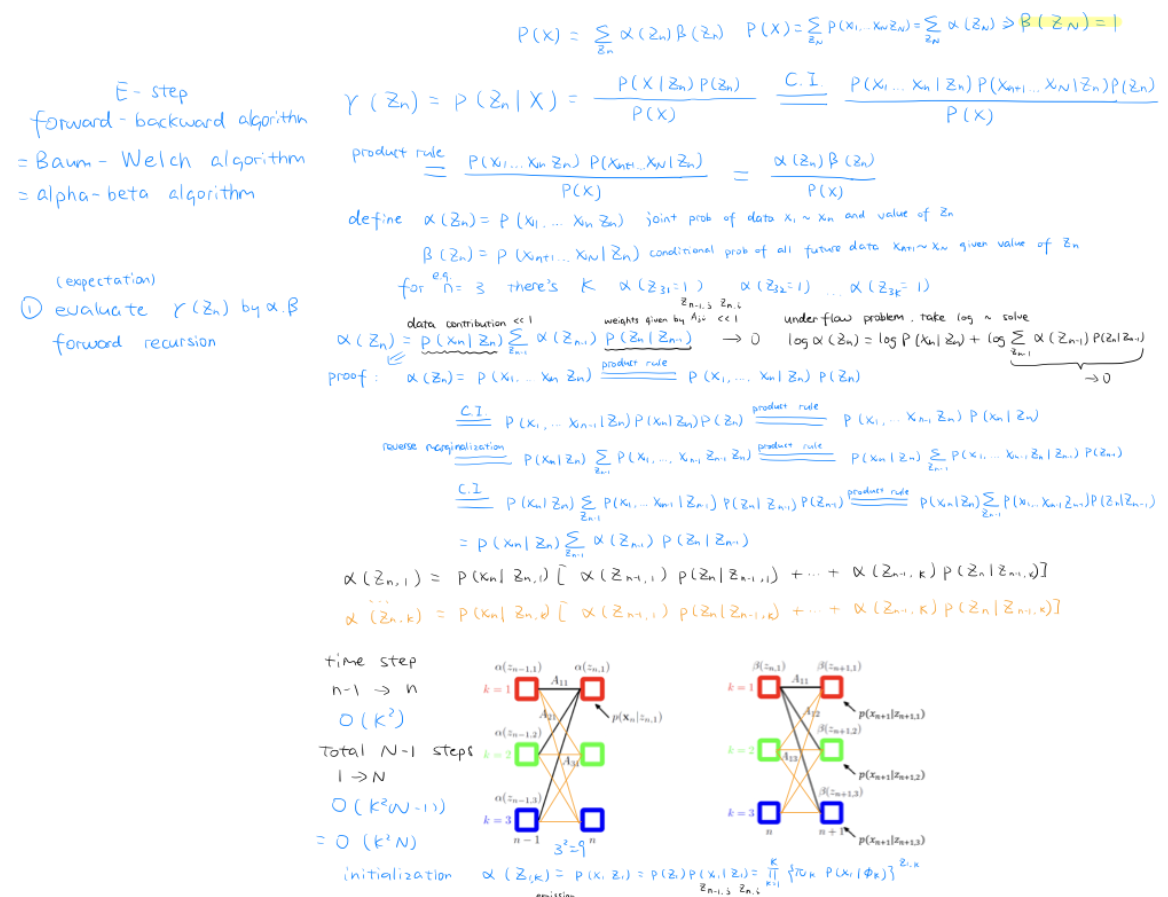 P(X) = Σ_{Zn} α(Zn)β(Zn) P(X) = Σ_{ZN} P(x1,...xN ZN) = Σ_{ZN} α(ZN) ⇒ β(ZN) = 1
E-step
forward-backward algorithm
= Baum-Welch algorithm
= alpha-beta algorithm
γ(Zn) = P(Zn|X) = P(X|Zn)P(Zn) / P(X) =(C.I.) P(x1...xn|Zn)P(xn+1...xN|Zn)P(Zn) / P(X)
product rule = P(x1...xn Zn) P(xn+1...xN|Zn) / P(X) = α(Zn)β(Zn) / P(X)
define α(Zn) = P(x1,...xn Zn) joint prob of data x1~xn and value of Zn
β(Zn) = P(xn+1...xN|Zn) conditional prob of all future data xn+1~xN given value of Zn
(expectation)
① evaluate γ(Zn) by α.β
forward recursion
e.g.
for n=3 there's K α(Z31=1) α(Z32=1) ... α(Z3K=1)
Zn-1,j Zn,i
data contribution <<1 weights given by Aji <<1 underflow problem, take log ~ solve
α(Zn) = P(xn|Zn) Σ_{Zn-1} α(Zn-1) P(Zn|Zn-1) → 0 log α(Zn) = log P(xn|Zn) + log Σ_{Zn-1} α(Zn-1)P(Zn|Zn-1)
→0
proof: α(Zn) = P(x1...xn Zn) =(product rule) P(x1,...xn|Zn) P(Zn)
=(C.I.) P(x1,...xn-1|Zn)P(xn|Zn)P(Zn) =(product rule) P(x1,...xn-1, Zn) P(xn|Zn)
reverse marginalization = P(xn|Zn) Σ_{Zn-1} P(x1,...,xn-1, Zn-1, Zn) =(product rule) P(xn|Zn) Σ_{Zn-1} P(x1,...xn-1, Zn|Zn-1) P(Zn-1)
=(C.I) P(xn|Zn) Σ_{Zn-1} P(x1,...xn-1|Zn-1) P(Zn|Zn-1) P(Zn-1) =(product rule) P(xn|Zn) Σ_{Zn-1} P(x1,..xn-1 Zn-1)P(Zn|Zn-1)
= P(xn|Zn) Σ_{Zn-1} α(Zn-1) P(Zn|Zn-1)
α(Zn,1) = P(xn|Zn,1) [ α(Zn-1,1) P(Zn|Zn-1,1) + ... + α(Zn-1,K) P(Zn|Zn-1,K)]
...
α(Zn,K) = P(xn|Zn,K) [ α(Zn-1,1) P(Zn|Zn-1,K) + ... + α(Zn-1,K) P(Zn|Zn-1,K)]
time step
n-1 → n
O(K²)
Total N-1 steps
1 → N
O(K²(N-1))
= O(K²N)
α(zn−1,1) α(zn,1)
k = 1 A11
p(xn|zn,1)
A21
α(zn−1,2)
k = 2 A31
α(zn−1,3)
k = 3
n − 1 n
3²=9
β(zn,1) β(zn+1,1)
k = 1 A11
A12 p(xn+1|zn+1,1)
β(zn+1,2)
k = 2 A13
p(xn+1|zn+1,2)
β(zn+1,3)
k = 3
n n + 1 p(xn+1|zn+1,3)
initialization α(Z1,K) = P(x1 Z1) = P(Z1)P(x1|Z1) = Π_{k=1}^{K} {πk P(x1|ϕk)}^{Z1,K}
emission Zn-1,j Zn,i